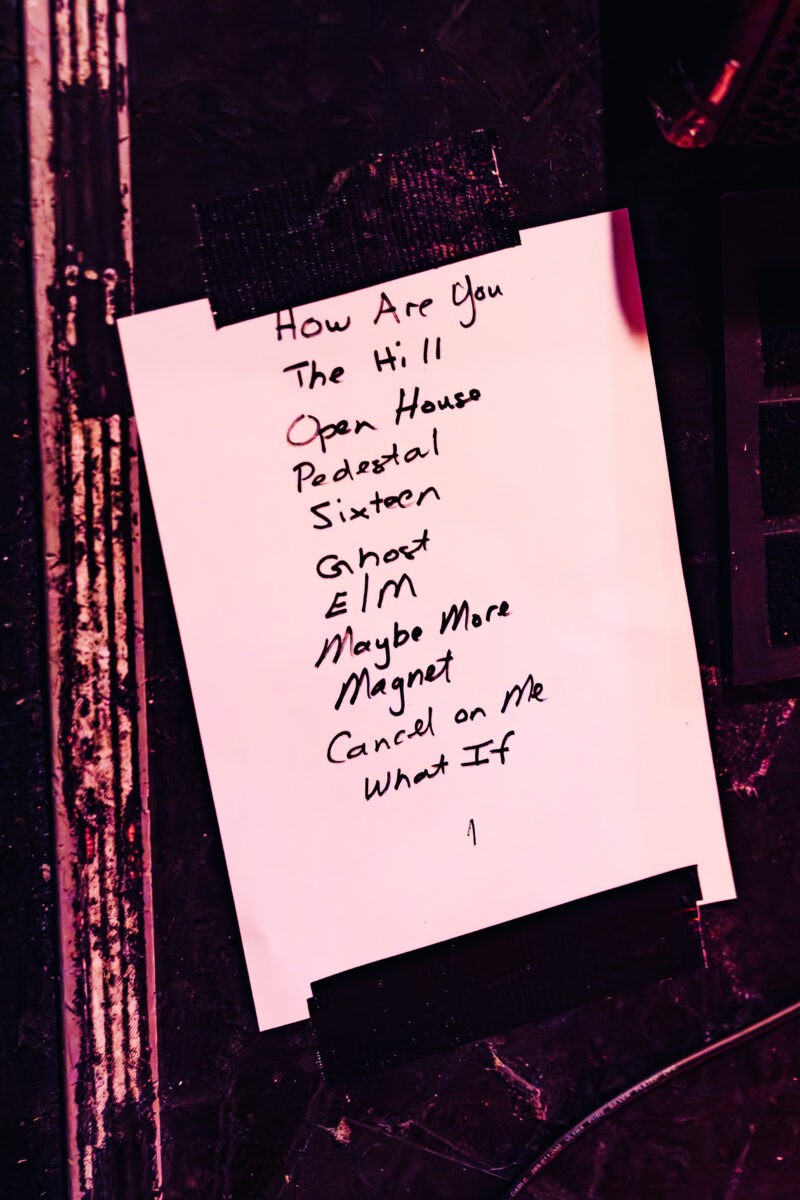 How Are You
The Hill
Open House
Pedestal
Sixteen
Ghost
Elm
Maybe More
Magnet
Cancel on Me
What If
1